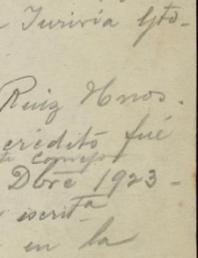 Yuriria Gto-
Ruiz Hnos.
crédito fué
consejo
Dbre 1923-
escrita
en la